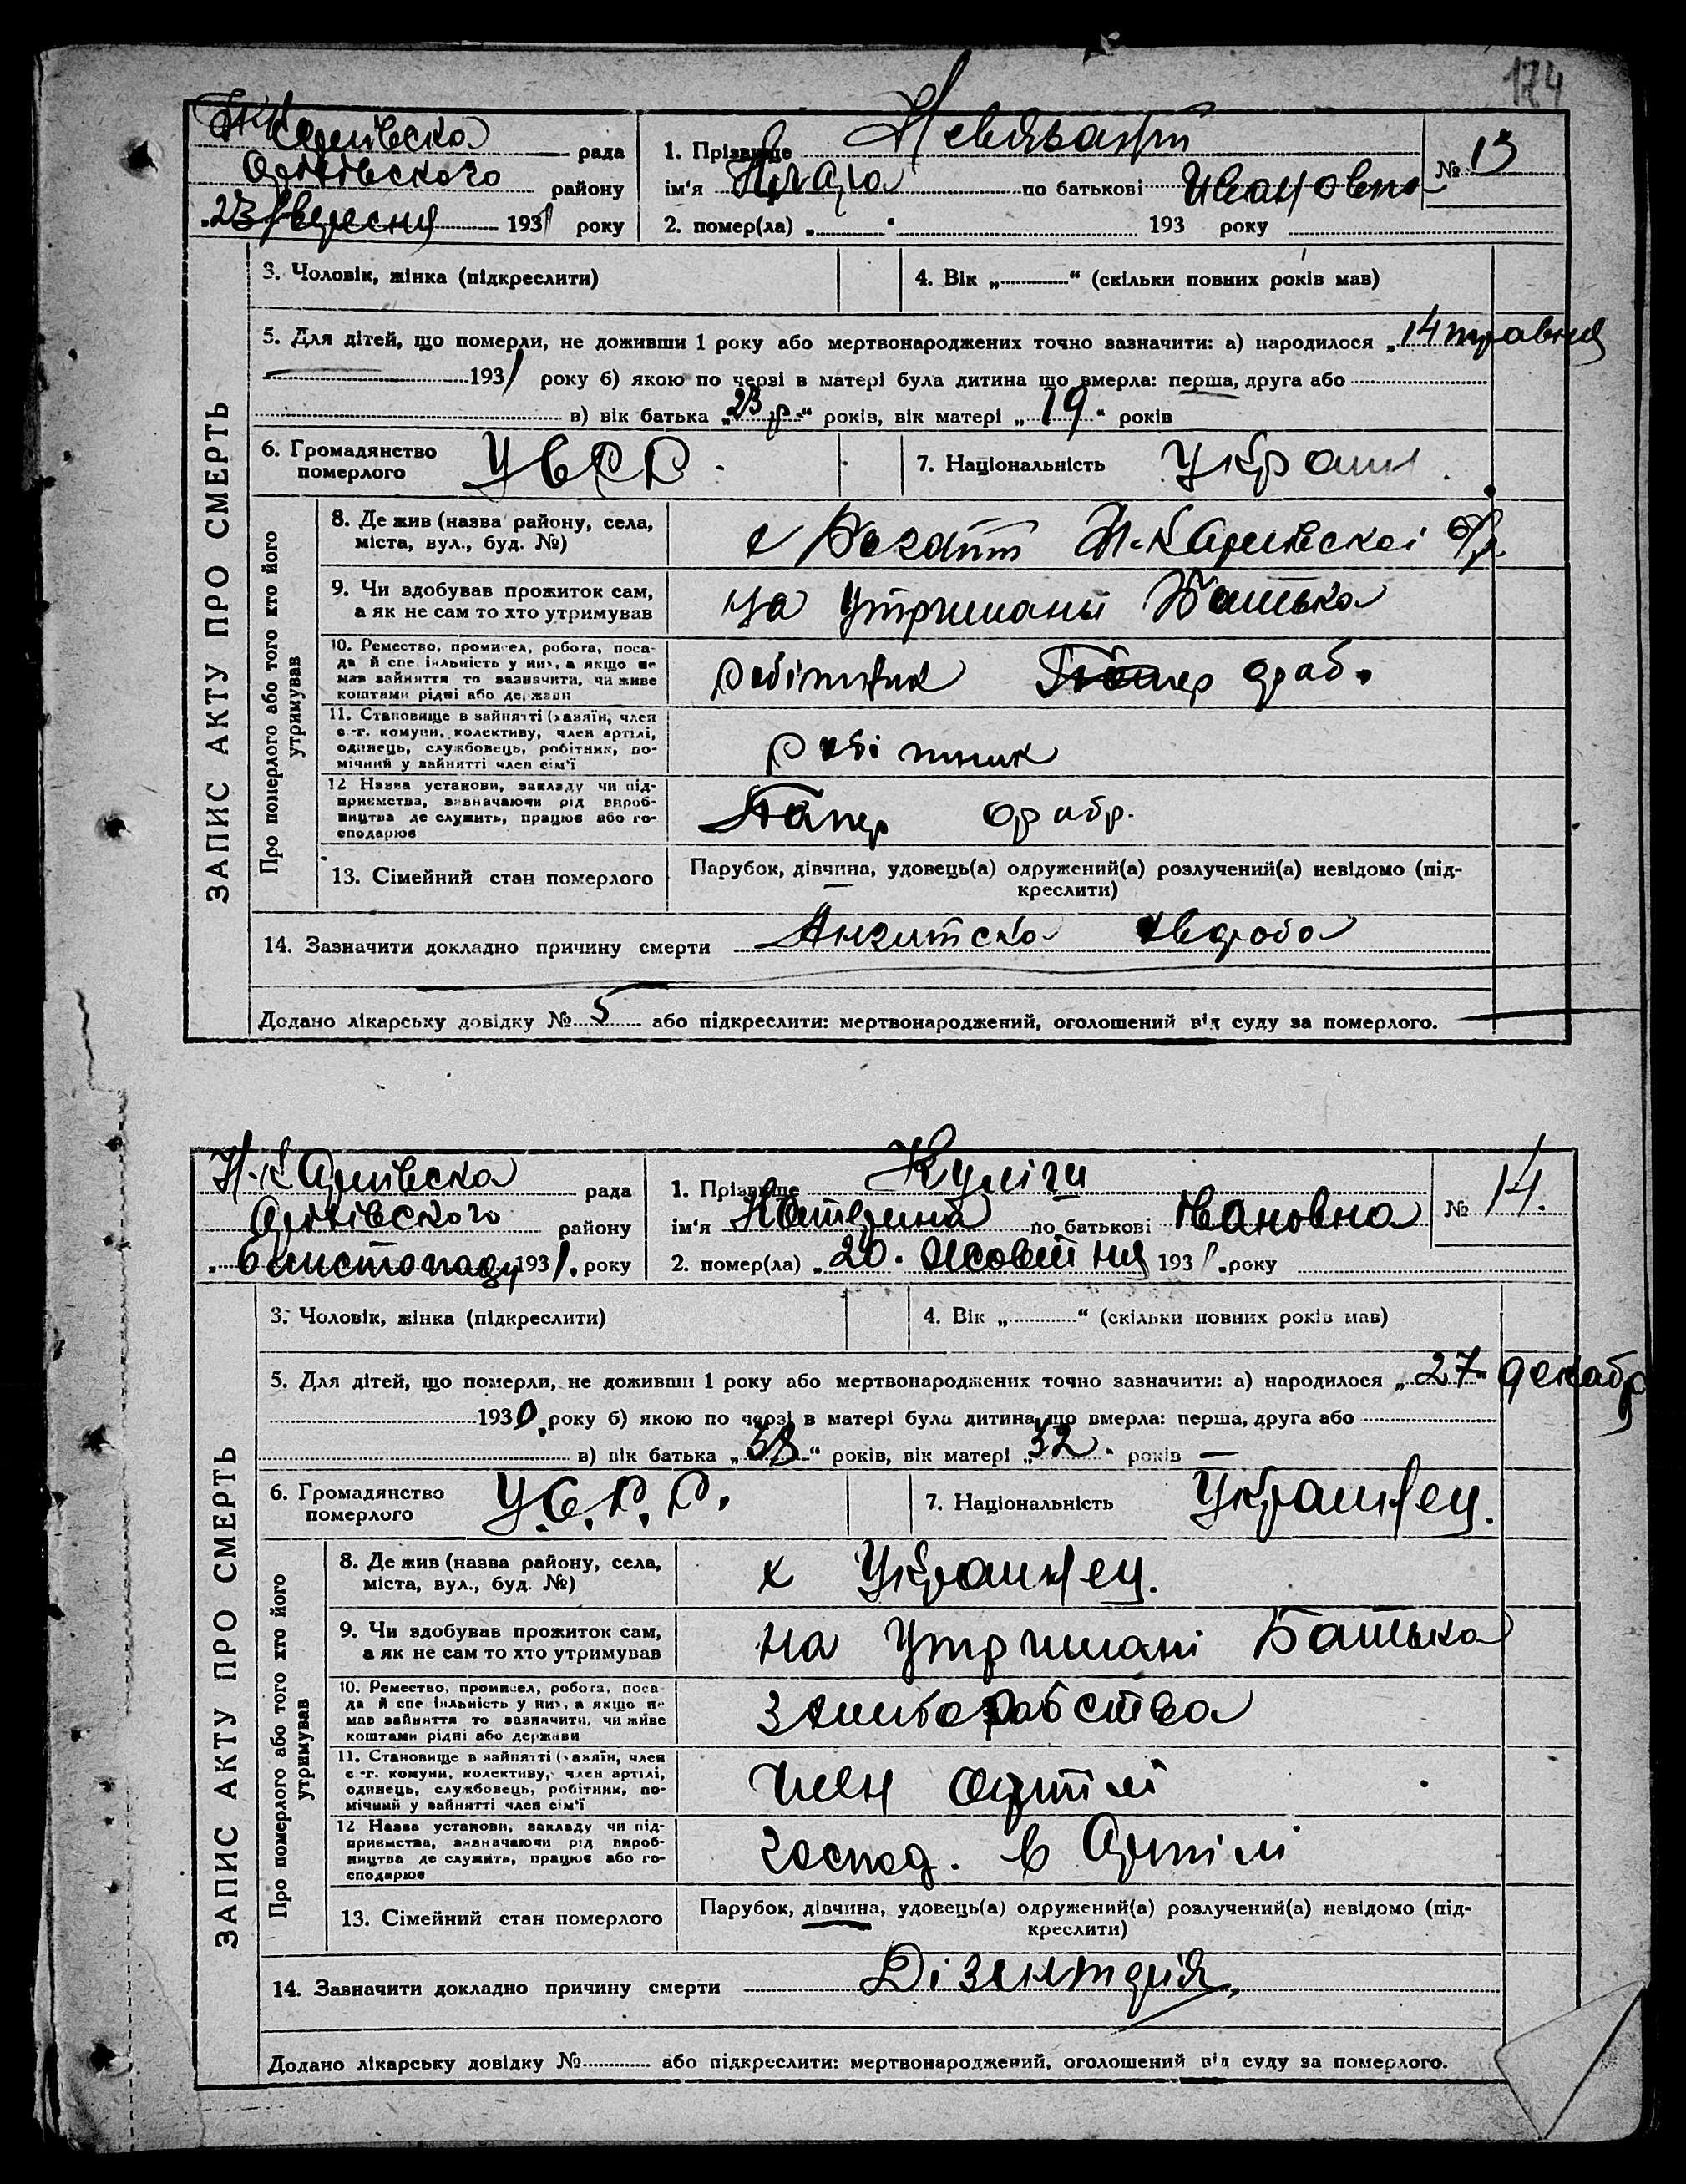 174
Н-Карлівска рада
Орінівского району
„23 вересня 1931 року
1. Прізвище
ім‘я Клара по батькові Ивановна
№ 13
2. помер(ла) „ “ 193 року
ЗАПИС АКТУ ПРО СМЕРТЬ
3. Чоловік, жінка (підкреслити)
4. Вік „ “ (скільки повних років мав)
5. Для дітей, що померли, не доживши 1 року або мертвонароджених точно зазначити: а) народилося „14 травня
1931 року б) якою по черзі в матері була дитина що вмерла: перша, друга або
в) вік батька „23 р.“ років, вік матері „19“ років
6. Громадянство померлого УСРР.
7. Національність Украин.
Про померлого або того хто його утримував
8. Де жив (назва району, села,
міста, вул., буд. №)
х Н-Карлівскоі с/р.
9. Чи здобував прожиток сам,
а як не сам то хто утримував
на утримані Батька
10. Ремество, промисел, робота, поса-
да й спеціяльність у них, а якщо не
мав зайняття то зазначити, чи живе
коштами рідні або держави
робітник фаб.
11. Становище в зайнятті (хазяїн, член
с.-г. комуни, колективу, член артілі,
одинець, службовець, робітник, по-
мічний у зайнятті член сім‘ї
робітник
12 Назва установи, закладу чи під-
приємства, зазначаючи рід вироб-
ництва де служить, працює або го-
сподарює
Папер фабр.
13. Сімейний стан померлого
Парубок, дівчина, удовець(а) одружений(а) розлучений(а) невідомо (під-
креслити)
14. Зазначити докладно причину смерти Англитска хвороба
Додано лікарську довідку № 5 або підкреслити: мертвонароджений, оголошений від суду за померлого.
Н-Карлівска рада
Орінівского району
„6 листопаду 1931. року
1. Прізвище Куліги
ім‘я Катерина по батькові Івановна
№ 14.
2. помер(ла) „20. Жовтня 1931. року
ЗАПИС АКТУ ПРО СМЕРТЬ
3. Чоловік, жінка (підкреслити)
4. Вік „ “ (скільки повних років мав)
5. Для дітей, що померли, не доживши 1 року або мертвонароджених точно зазначити: а) народилося „27 декабр
1930. року б) якою по черзі в матері була дитина що вмерла: перша, друга або
в) вік батька „38“ років, вік матері „32“ років
6. Громадянство померлого У.С.Р.Р.
7. Національність Украинец.
Про померлого або того хто його утримував
8. Де жив (назва району, села,
міста, вул., буд. №)
х Украинец.
9. Чи здобував прожиток сам,
а як не сам то хто утримував
на утримані Батька
10. Ремество, промисел, робота, поса-
да й спеціяльність у них, а якщо не
мав зайняття то зазначити, чи живе
коштами рідні або держави
Хлиборобства
11. Становище в зайнятті (хазяїн, член
с.-г. комуни, колективу, член артілі,
одинець, службовець, робітник, по-
мічний у зайнятті член сім‘ї
член артілі
12 Назва установи, закладу чи під-
приємства, зазначаючи рід вироб-
ництва де служить, працює або го-
сподарює
господ. в Артілі
13. Сімейний стан померлого
Парубок, дівчина, удовець(а) одружений(а) розлучений(а) невідомо (під-
креслити)
14. Зазначити докладно причину смерти Дізентерія
Додано лікарську довідку № або підкреслити: мертвонароджений, оголошений від суду за померлого.